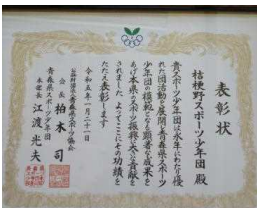 表彰状
桔梗野スポーツ少年団 殿
貴スポーツ少年団は永年にわたり優
れた団活動を展開し青森県スポーツ
少年団の模範となる顕著な成果を
あげ本県のスポーツ振興に大いに貢献
されました よってここにその功績を
たたえ表彰します
令和五年一月二十一日
公益財団法人青森県スポーツ協会
会長 柏木 司
青森県スポーツ少年団
本部長 江渡光夫